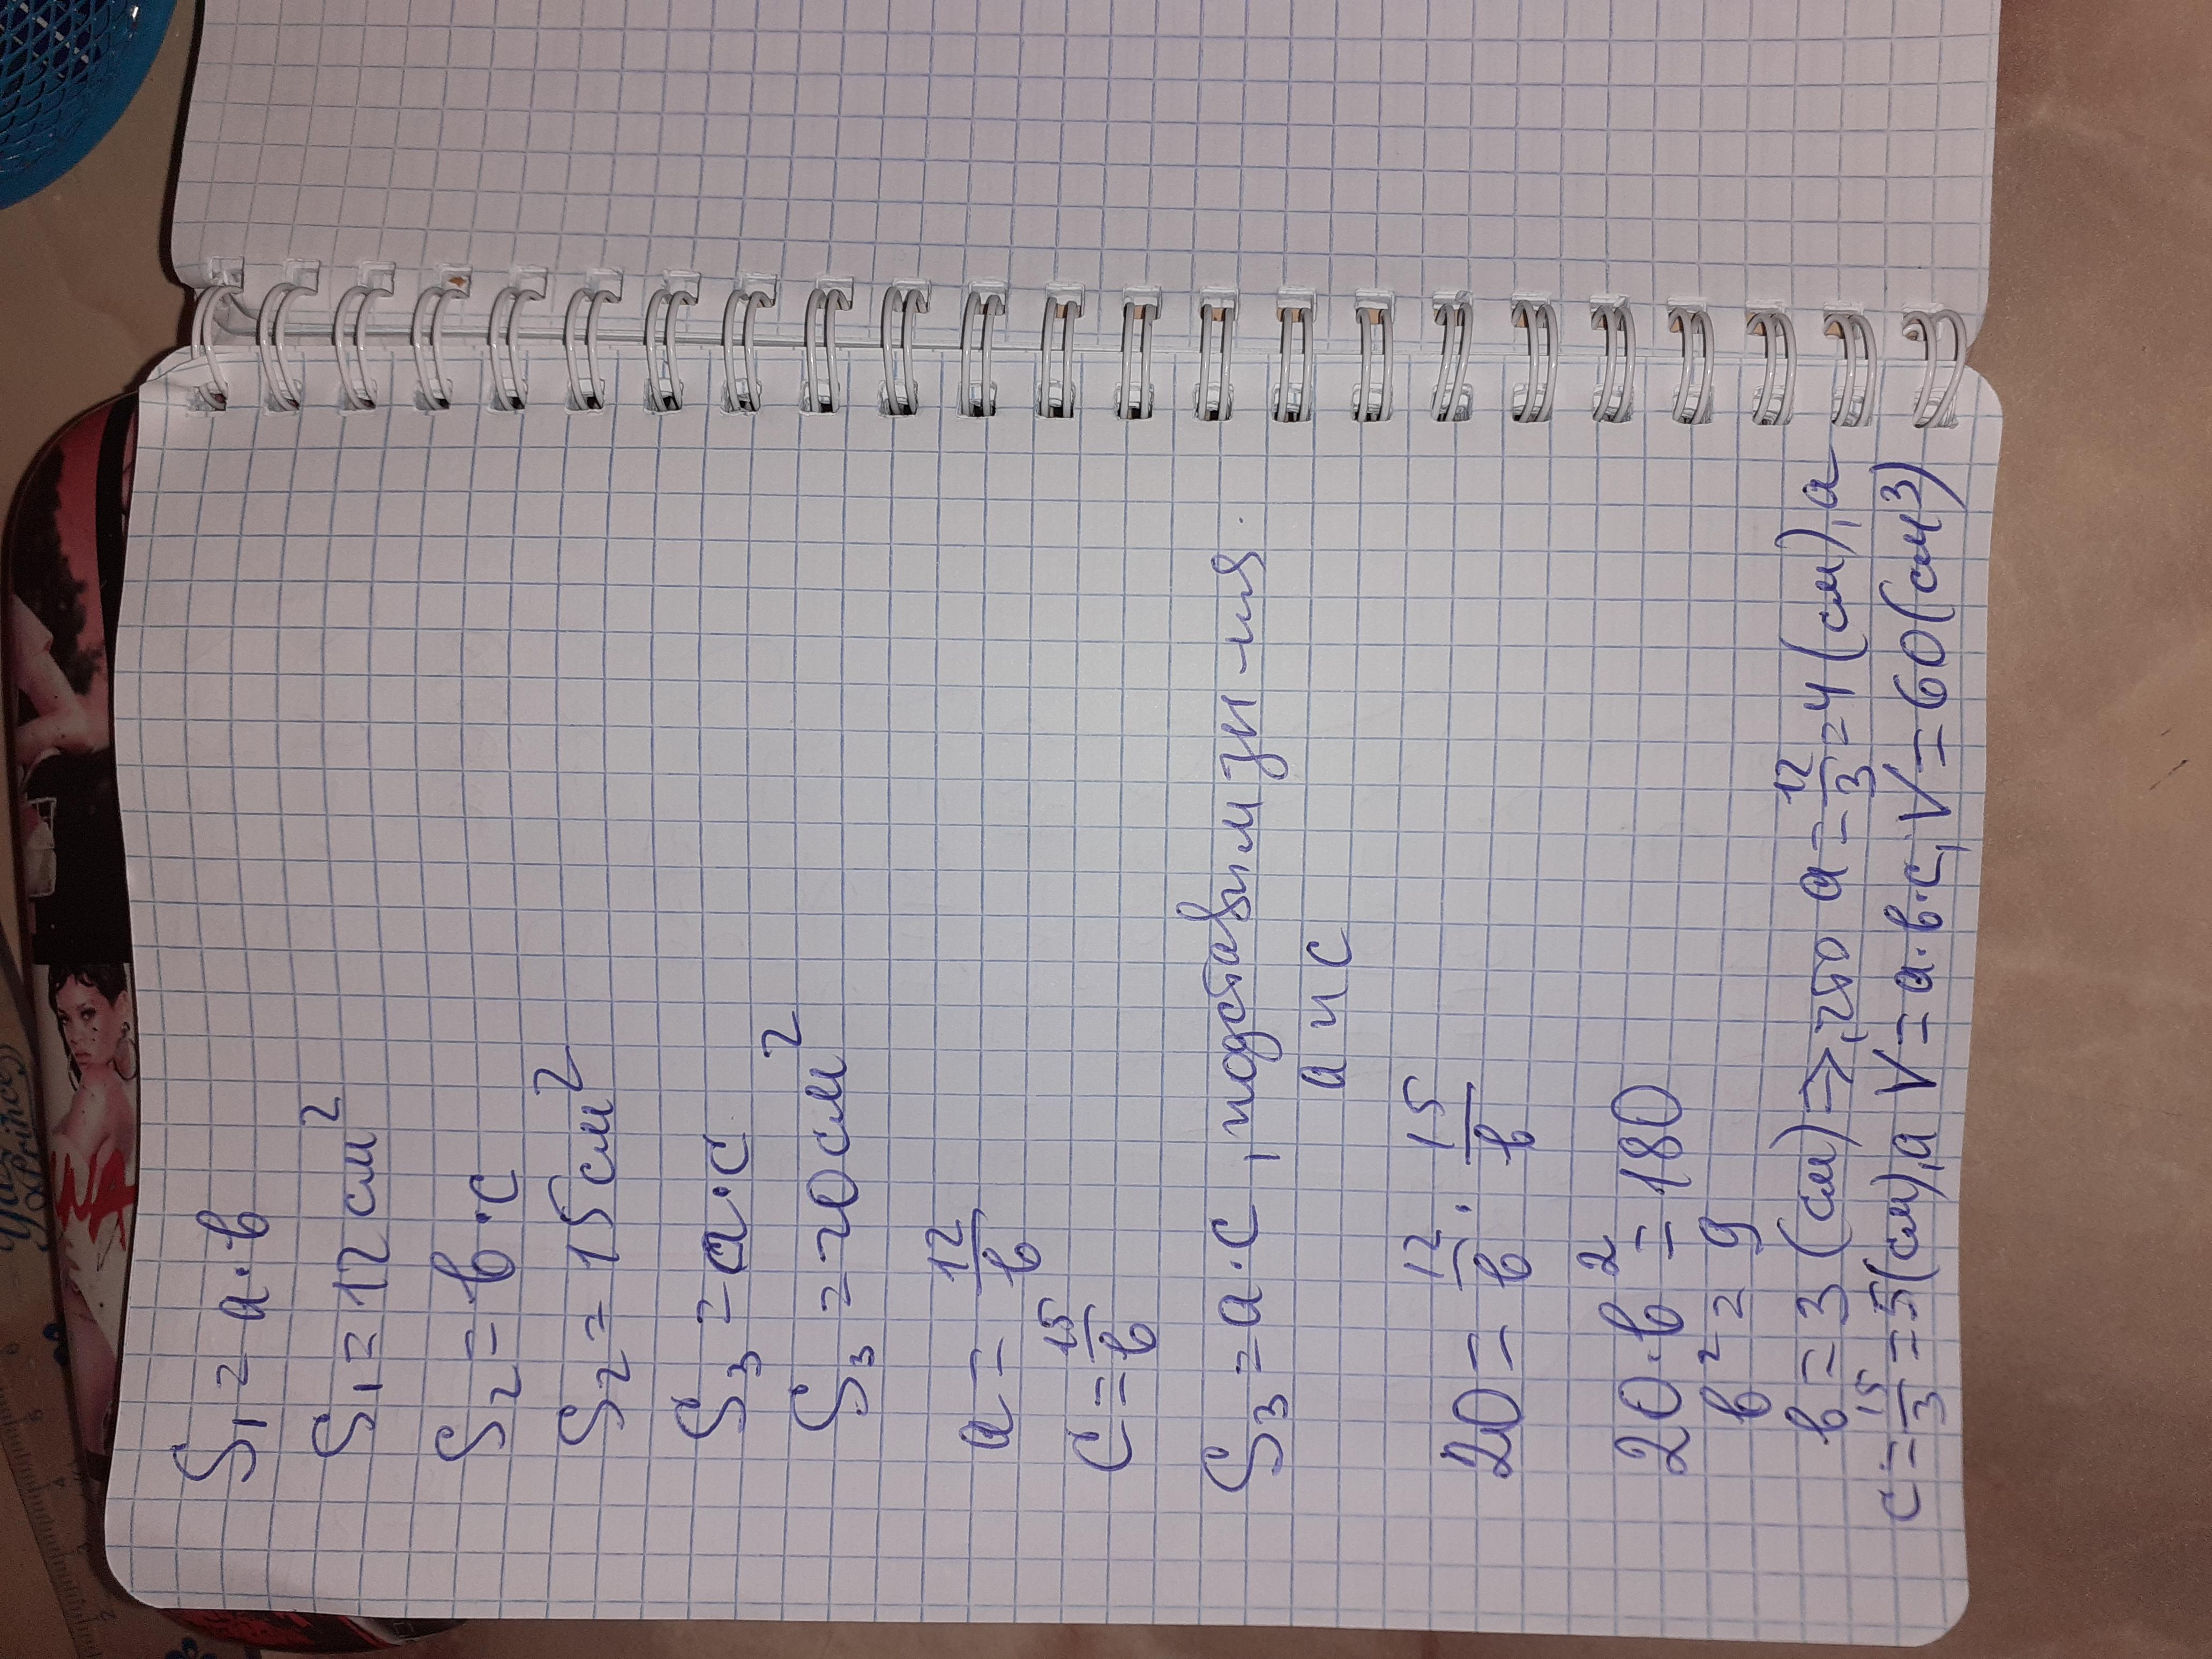 S₁ = a·b
S₁ = 12 см²
S₂ = b·c
S₂ = 15 см²
S₃ = a·c
S₃ = 20 см²
a = 12/b
c = 15/b
S₃ = a·c, подставим зн-ия
a и c
20 = 12/b · 15/b
20·b² = 180
b² = 9
b = 3 (см) => , что a = 12/3 = 4 (см), а
c = 15/3 = 5 (см), а V = a·b·c, V = 60 (см³)